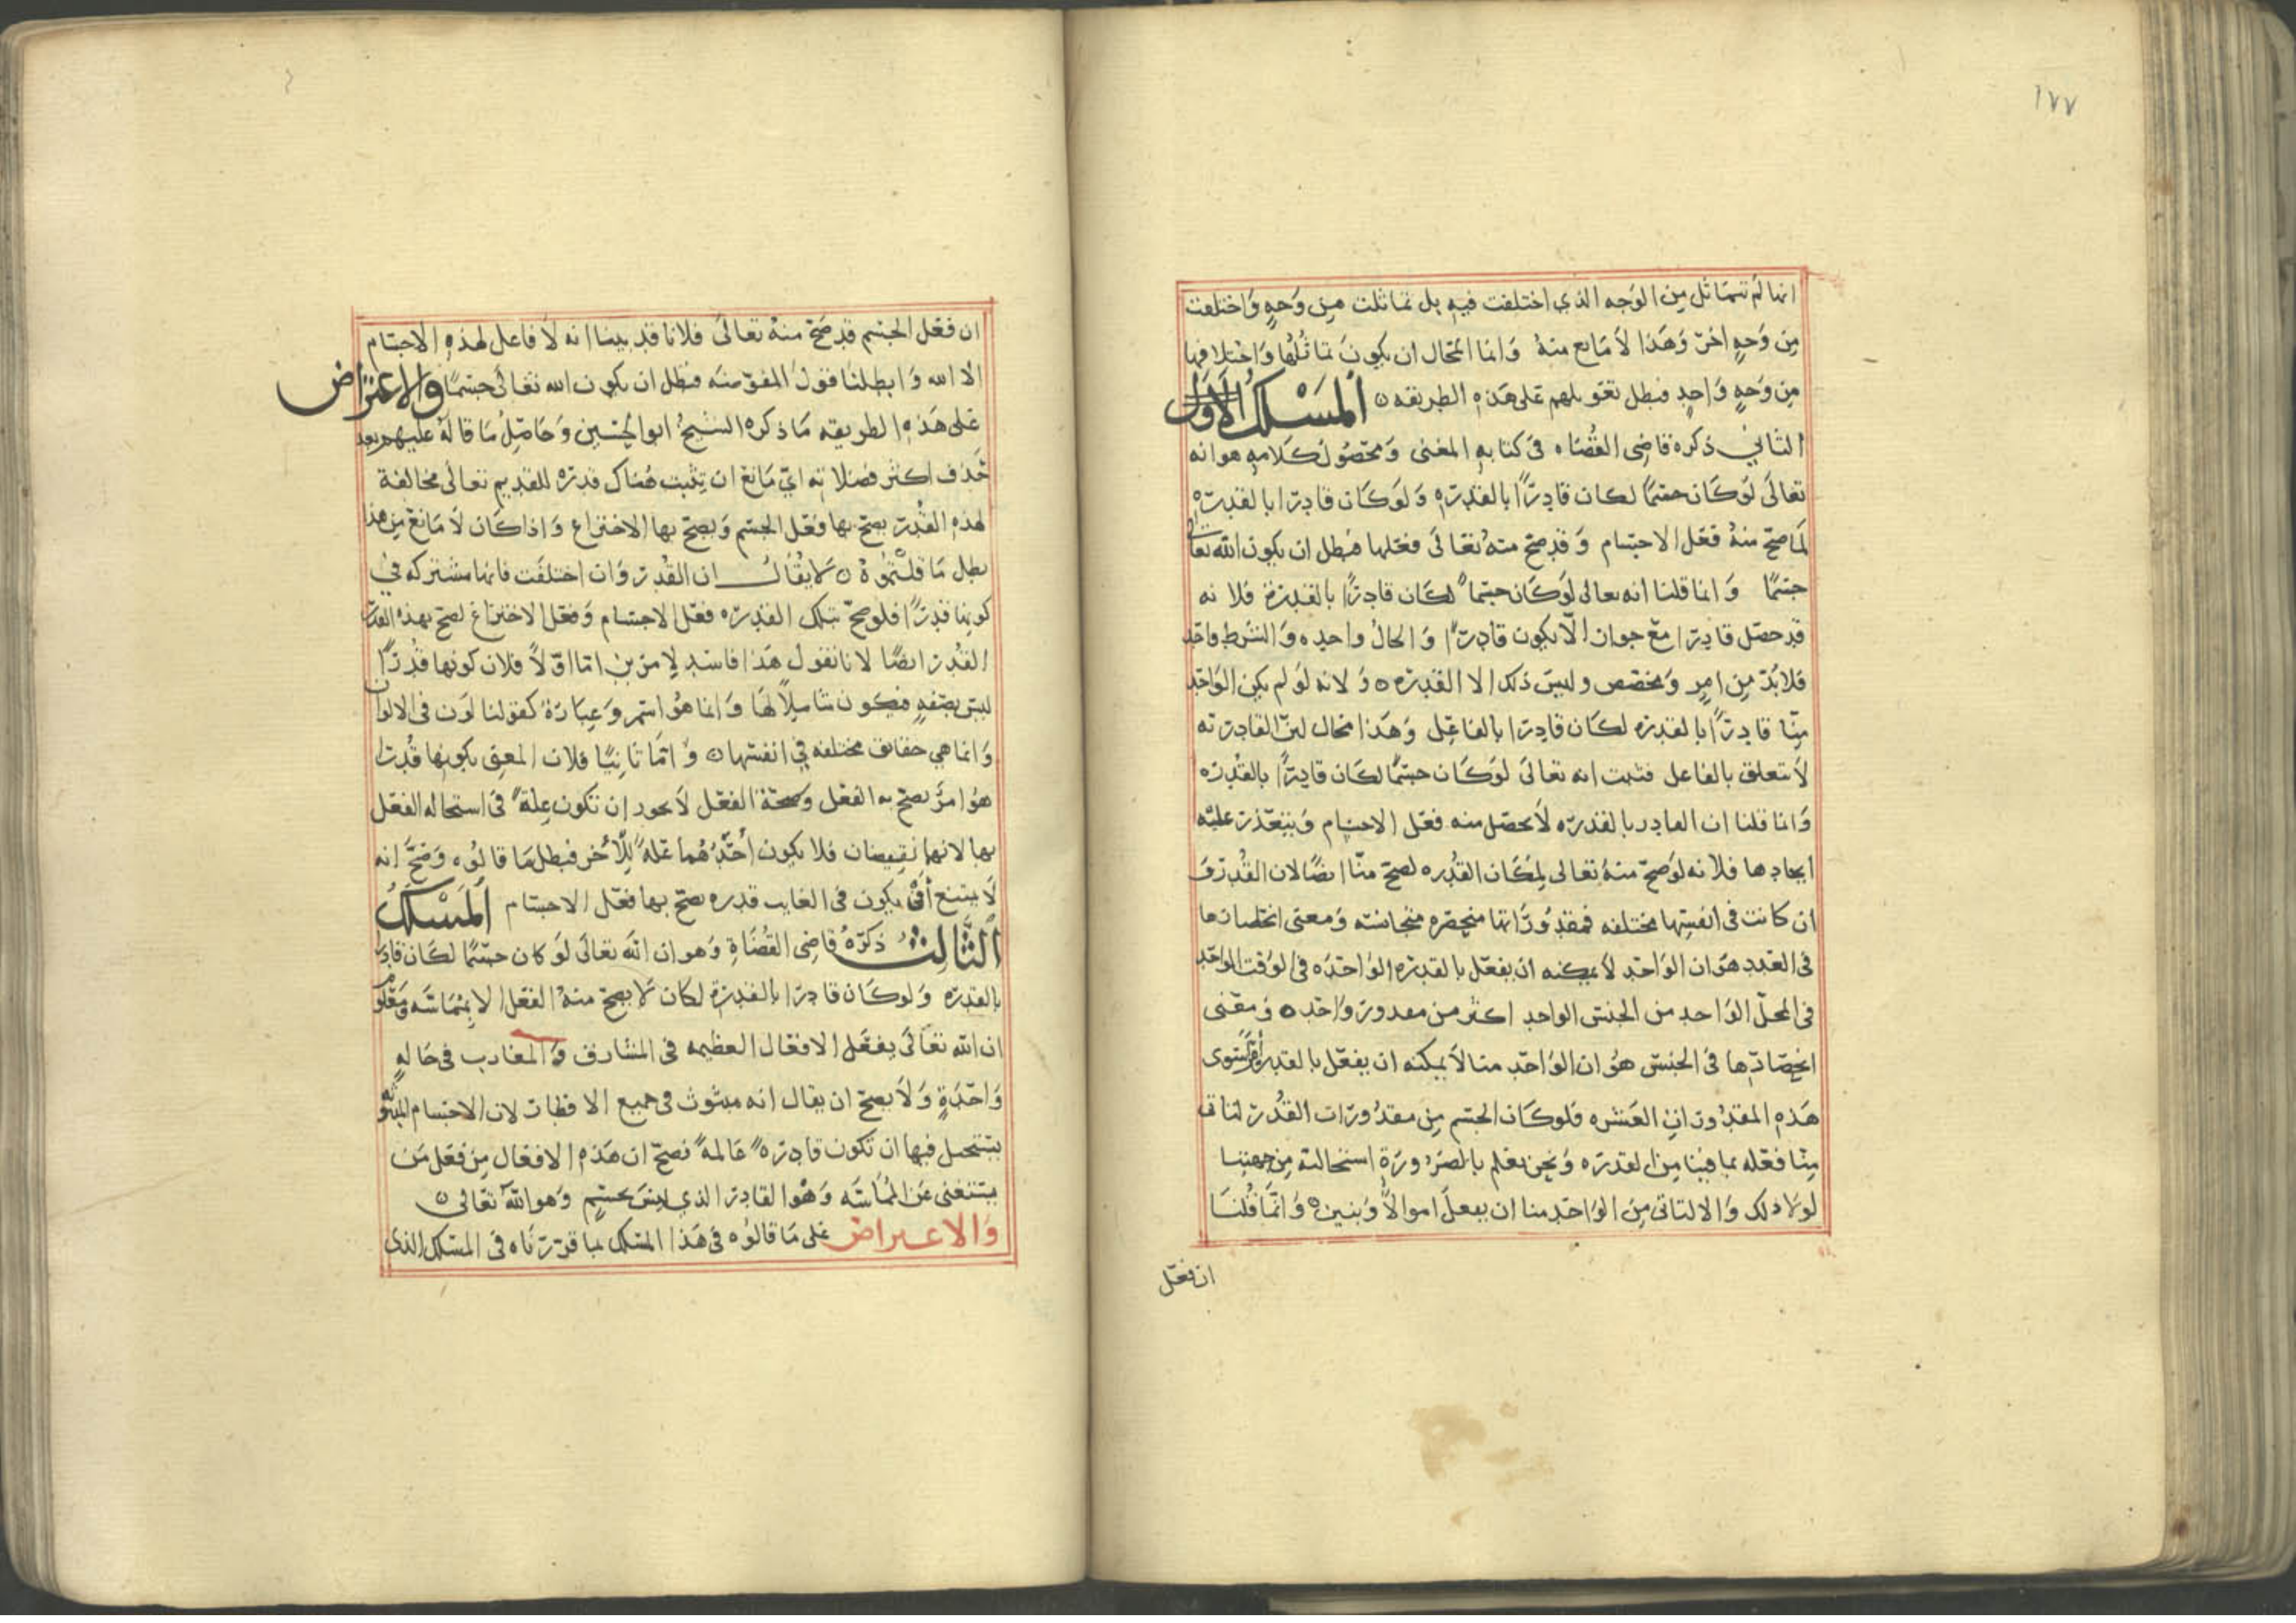 ١٧٧
انها لم تتماثل من الوجه الذي اختلفت فيه بل تماثلت من وجه واختلفت
من وجه اخر وهذا لا مانع منه وانما المحال ان يكون تماثلها واختلافها
من وجه واحد فبطل تعويلهم على هذه الطريقه ٥ المسلك الاول
الثاني ذكره قاضى القضاه في كتابه المغنى ومحصول كلامه هو انه
تعالى لوكان جسمًا لكان قادرًا بالقدره ولوكان قادرا بالقدره
لما صح منه فعل الاجسام وقد صح منه تعالى فعلها فبطل ان يكون الله تعالى
جسمًا وانما قلنا انه تعالى لوكان جسما لكان قادرًا بالقدرة فلانه
قد حصل قادرا مع جواز الّا يكون قادرًا والحال واحده والشرط واحد
فلا بد من امر ومخصص وليس ذلك الا القدره ٥ ولانه لو لم يكن الواحد
منّا قادرًا بالقدره لكان قادرا بالفاعل وهذا محال لان القادريه
لا تتعلق بالفاعل فثبت انه تعالى لوكان جسمًا لكان قادرًا بالقدره
وانما قلنا ان القادر بالقدره لا يحصل منه فعل الاجسام ويتعذر عليه
ايجادها فلانه لوصح منه تعالى لمكان القدره لصح منّا ايضًا لان القدر و
ان كانت في انفسها مختلفه فمقدوراتها منحصره متجانسه ومعنى انحصارها
في العدد هو ان الواحد لا يمكنه ان يفعل بالقدره الواحده في الوقت الواحد
في المحل الواحد من الجنس الواحد اكثر من مقدور واحد ٥ ومعنى
انحصارها في الجنس هو ان الواحد منا لا يمكنه ان يفعل بالقدر امرًا سوى
هذه المقدورات العشره فلوكان الجسم من مقدورات القدر لتاتى
منّا فعله بما فينا من القدره ونحن نعلم بالضرورة استحالته من جهتنا
لولا ذلك والا لتاتى من الواحد منا ان يفعل اموالًا وبنين ٥ وانما قلنا
ان فعل
ان فعل الجسم قد صح منه تعالى فلانا قد بينا انه لا فاعل لهذه الاجسام
الا الله وابطلنا قول المفوضه فبطل ان يكون الله تعالى جسمًا والاعتراض
على هذه الطريقه ما ذكره الشيخ ابو الحسين وحاصل ما قاله عليهم بعد
حذف اكثر فضلاته اي مانع ان تثبت هناك قدره للقديم تعالى مخالفة
لهذه القدر يصح بها فعل الجسم ويصح بها الاختراع واذا كان لا مانع من هذا
بطل ما قلتموه ٥ لا يقال ان القدر وان اختلفت فانها مشتركه في
كونها قدرًا فلو صح بتلك القدره فعل الاجسام وفعل الاختراع لصح بهذه القدر
القدر ايضًا لانا نقول هذا فاسد لامرين اما اولًا فلان كونها قدرًا
ليس بصفه فيكون شاملًا لها وانما هو اسم وعبارة كقولنا لون في الالوان
وانما هي حقائق مختلفه في انفسها ٥ واما ثانيًا فلان المعنى بكونها قدرا
هو امر يصح به الفعل وصحة الفعل لا يجوز ان تكون علة في استحاله الفعل
بها لانهما نقيضان فلا يكون احدهما علة للاخر فبطل ما قالوه وضح انه
لا يمتنع ان يكون في الغايب قدره يصح بها فعل الاجسام المسلك
الثالث ذكره قاضى القضاة وهو ان الله تعالى لوكان جسمًا لكان قادرا
بالقدره ولوكان قادرا بالقدرة لكان لا يصح منه الفعل الا بمماسه ومعلوم
ان الله تعالى يفعل الافعال العظيمه في المشارق والمغارب في حاله
واحدة ولا يصح ان يقال انه مبثوث في جميع الاقطار لان الاجسام المبثوثه
يستحيل فيها ان تكون قادره عالمه فصح ان هذه الافعال من فعل من
يستغنى عن المماسه وهو القادر الذي ليس بجسم وهو الله تعالى ٥
والاعتراض على ما قالوه في هذا المسلك بما قررناه في المسلك الذي